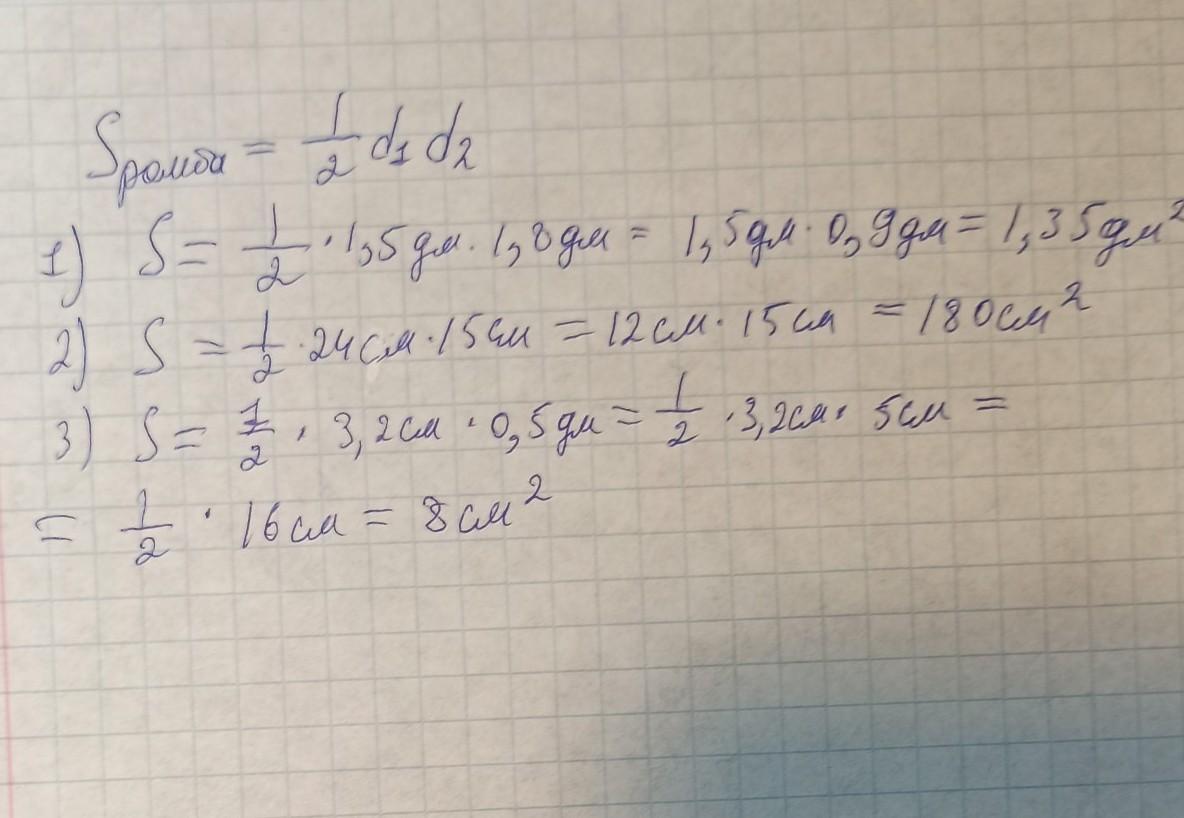 Sромба = 1/2 d1 d2
1) S = 1/2 · 1,5дм · 1,8дм = 1,5дм · 0,9дм = 1,35дм²
2) S = 1/2 · 24см · 15см = 12см · 15см = 180см²
3) S = 1/2 · 3,2см · 0,5дм = 1/2 · 3,2см · 5см =
= 1/2 · 16см = 8см²